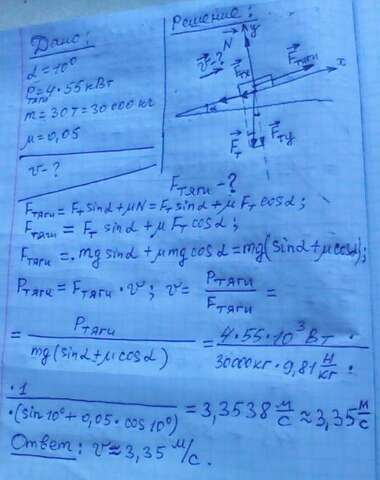 Дано:
α = 10°
Pтяги = 4·55 кВт
m = 30т = 30 000 кг
μ = 0,05
v - ?
Решение:
y
N
v - ?
Fтх
Fтяги
x
α
Fт
Fту
Fтяги - ?
Fтяги = Fт sinα + μN = Fт sinα + μ Fт cosα;
Fтяги = Fт sinα + μ Fт cosα;
Fтяги = mg sinα + μmg cosα = mg(sinα + μcosα);
Pтяги = Fтяги · v; v = Pтяги / Fтяги =
= Pтяги / mg(sinα + μcosα) = 4·55·10³ Вт / 30000кг · 9,81 Н/кг ·
· 1 / ·(sin 10° + 0,05 · cos 10°) = 3,3538 м/с ≈ 3,35 м/с
Ответ: v ≈ 3,35 м/с.